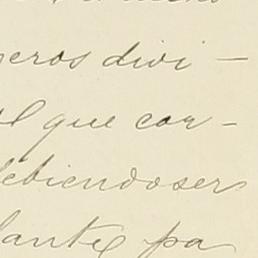 eros divi-
l que cor-
ebiendo ser
lante pa